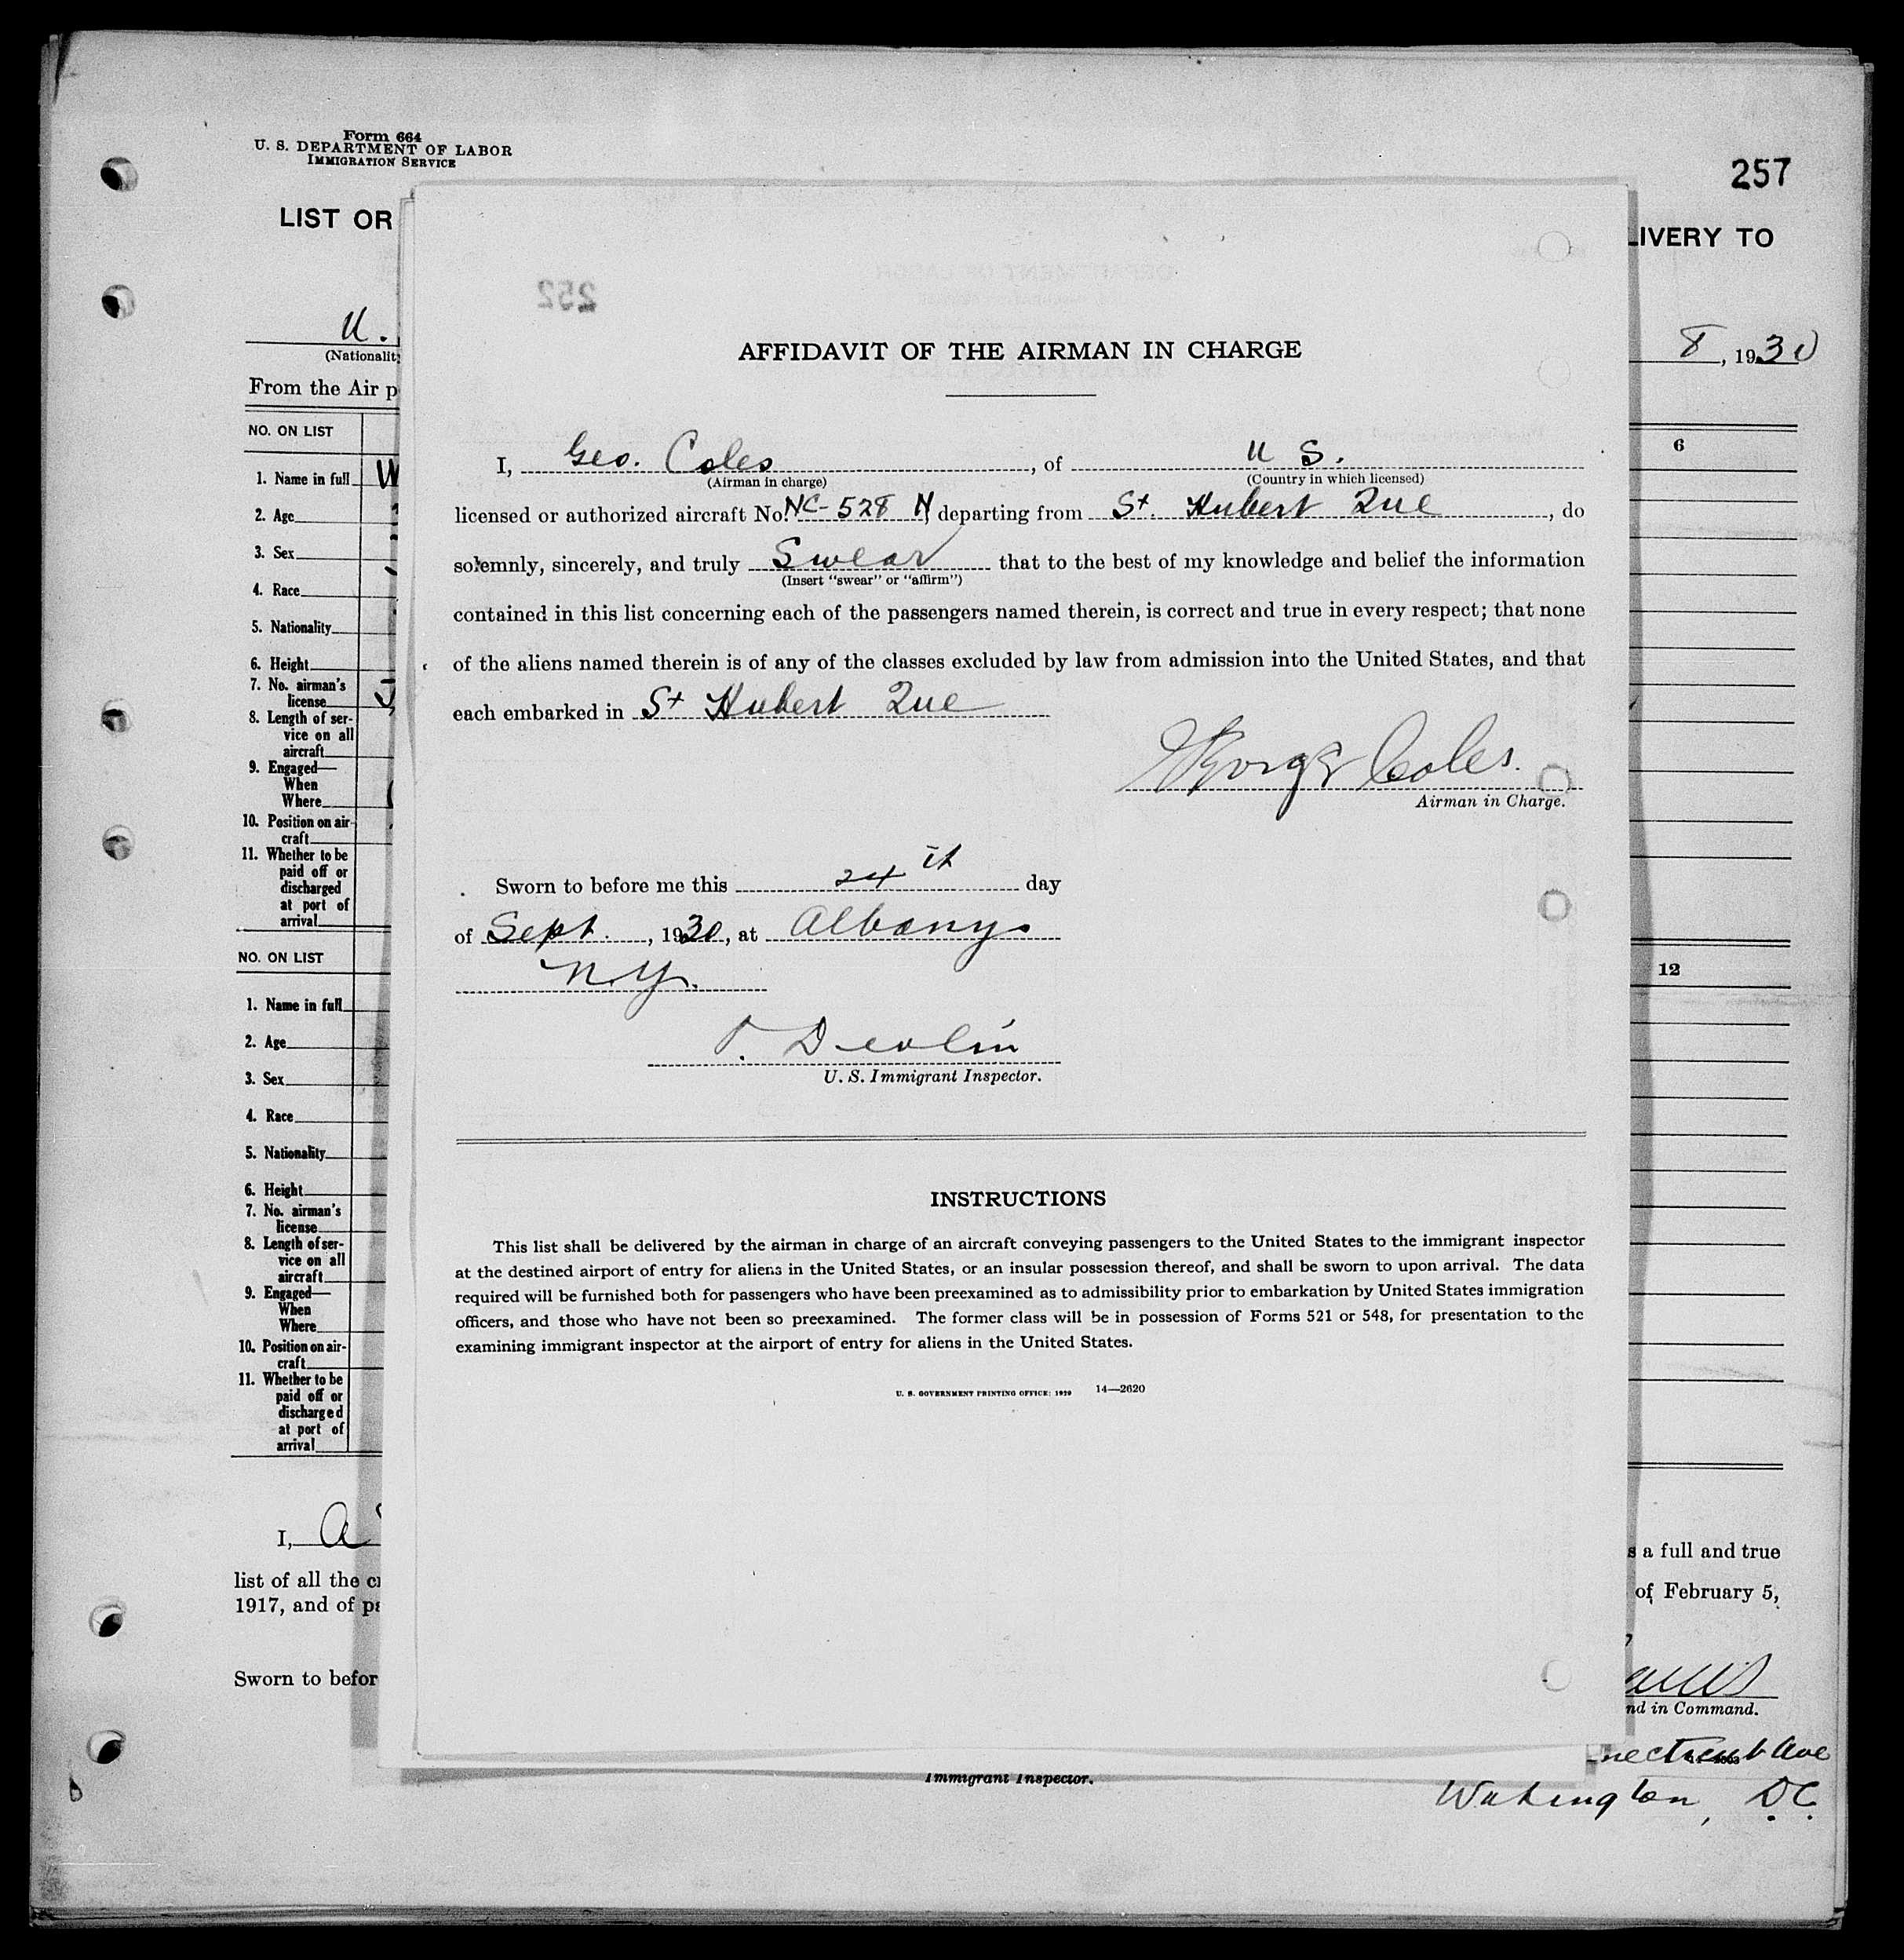 Form 664
U. S. DEPARTMENT OF LABOR
IMMIGRATION SERVICE
257
LIST OR
LIVERY TO
U.
(Nationalit
8, 1930
From the Air p
NO. ON LIST
6
1. Name in full W
2. Age
3. Sex
4. Race
5. Nationality
6. Height
7. No. airman's
license
8. Length of ser-
vice on all
aircraft
9. Engaged—
When
Where
10. Position on air-
craft
11. Whether to be
paid off or
discharged
at port of
arrival
NO. ON LIST
12
1. Name in full
2. Age
3. Sex
4. Race
5. Nationality
6. Height
7. No. airman's
license
8. Length of ser-
vice on all
aircraft
9. Engaged—
When
Where
10. Position on air-
craft
11. Whether to be
paid off or
discharged
at port of
arrival
I, A
s a full and true
list of all the c
of February 5,
1917, and of pa
Sworn to befor
nd in Command.
necticut Ave
Immigrant Inspector.
Wahington, D.C.
252
AFFIDAVIT OF THE AIRMAN IN CHARGE
I, Geo. Coles, of U S.
(Airman in charge) (Country in which licensed)
licensed or authorized aircraft No. NC-528 N, departing from St. Hubert Que, do
solemnly, sincerely, and truly Swear that to the best of my knowledge and belief the information
(Insert "swear" or "affirm")
contained in this list concerning each of the passengers named therein, is correct and true in every respect; that none
of the aliens named therein is of any of the classes excluded by law from admission into the United States, and that
each embarked in St Hubert Que
George Coles.
Airman in Charge.
Sworn to before me this 24th day
of Sept., 1930, at Albany
N.Y.
Devlin
U. S. Immigrant Inspector.
INSTRUCTIONS
This list shall be delivered by the airman in charge of an aircraft conveying passengers to the United States to the immigrant inspector
at the destined airport of entry for aliens in the United States, or an insular possession thereof, and shall be sworn to upon arrival. The data
required will be furnished both for passengers who have been preexamined as to admissibility prior to embarkation by United States immigration
officers, and those who have not been so preexamined. The former class will be in possession of Forms 521 or 548, for presentation to the
examining immigrant inspector at the airport of entry for aliens in the United States.
U. S. GOVERNMENT PRINTING OFFICE: 1929 14—2620